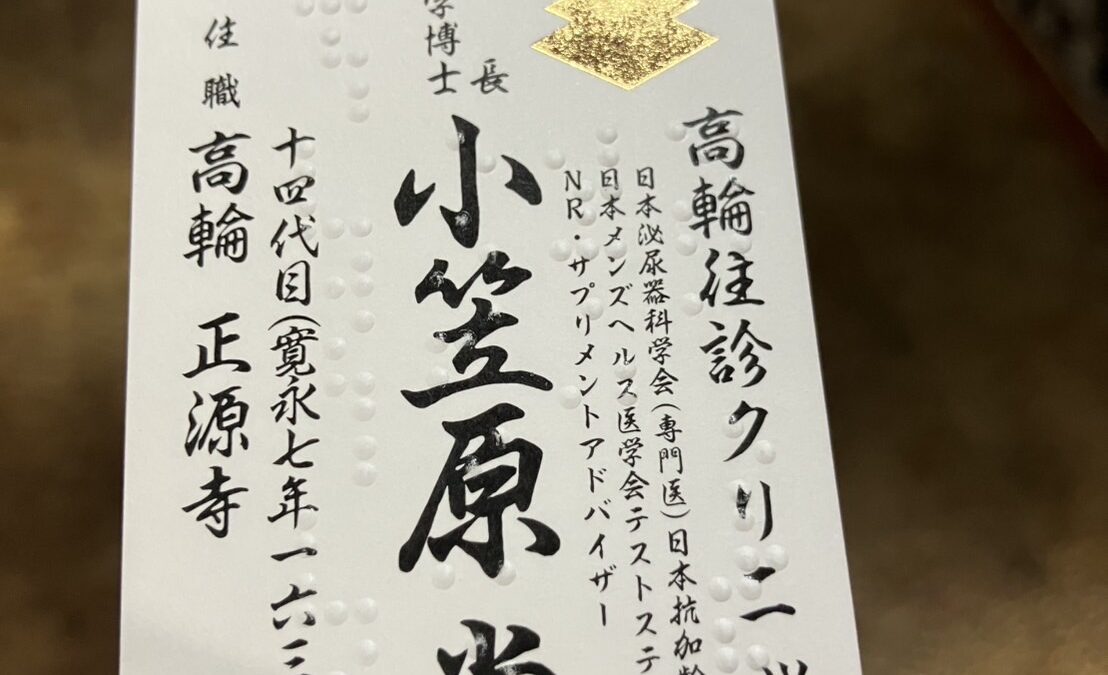 高輪往診クリニッ
日本泌尿器科学会(専門医)日本抗加齢
日本メンズヘルス医学会テストステ
NR・サプリメントアドバイザー
長
学博士
小笠原
十四代目(寛永七年一六三
住職
高輪 正源寺